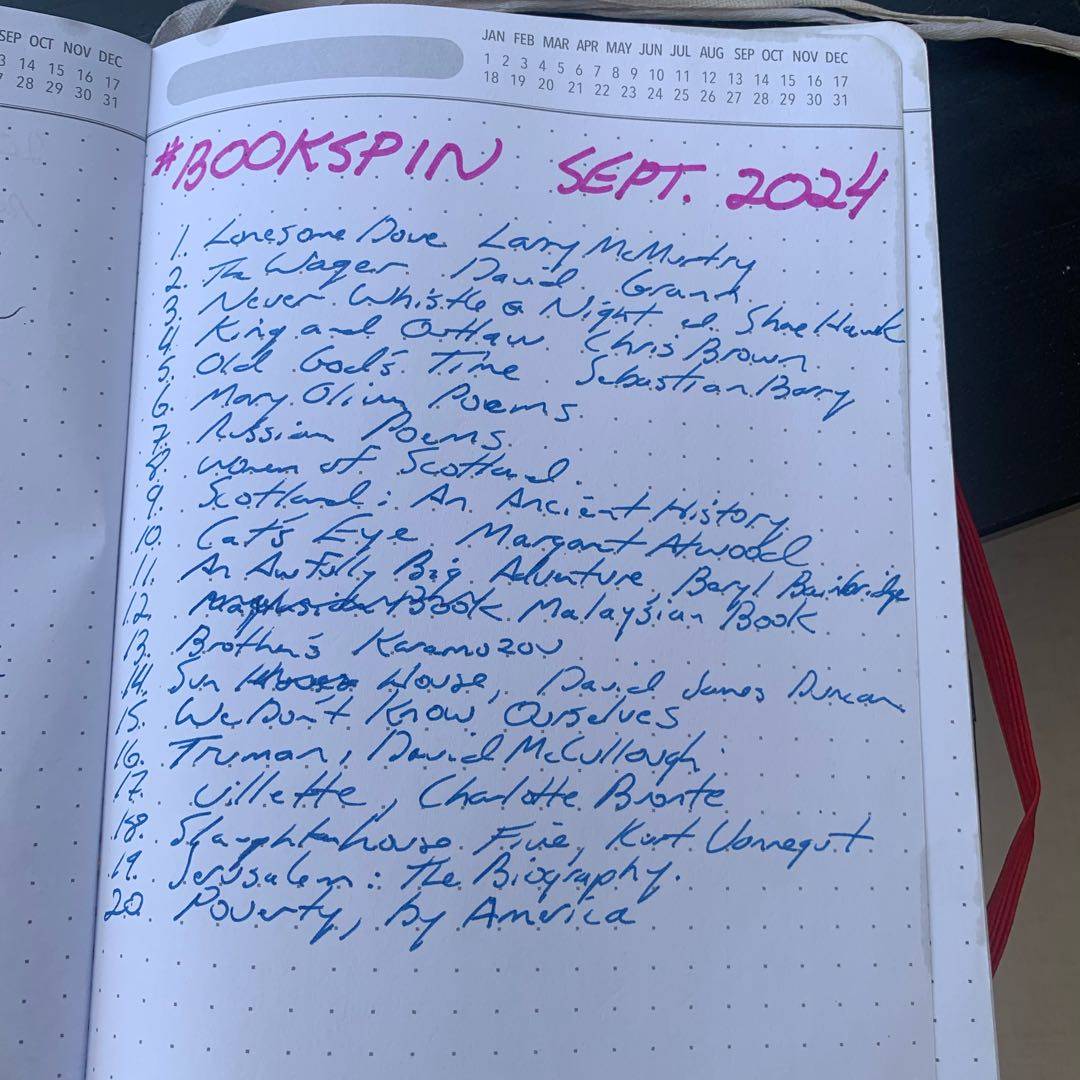 SEP OCT NOV DEC
3 14 15 16 17
28 29 30 31
JAN FEB MAR APR MAY JUN JUL AUG SEP OCT NOV DEC
1 2 3 4 5 6 7 8 9 10 11 12 13 14 15 16 17
18 19 20 21 22 23 24 25 26 27 28 29 30 31
#BOOKSPIN SEPT. 2024
1. Lonesome Dove Larry McMurtry
2. The Wager David Grann
3. Never Whistle @ Night ed. Shane Hawk
4. King and Outlaw Chris Brown
5. Old God's Time Sebastian Barry
6. Mary Oliver Poems
7. Russian Poems
8. Women of Scotland
9. Scotland: An Ancient History
10. Cat's Eye Margaret Atwood
11. An Awfully Big Adventure, Beryl Bainbridge
12. Book Malaysian Book
13. Brother's Karamozov
14. Sun House, David James Duncan
15. We Don't Know Ourselves
16. Truman, David McCullough
17. Villette, Charlotte Bronte
18. Slaughterhouse Five, Kurt Vonnegut
19. Jerusalem: The Biography.
20. Poverty, by America